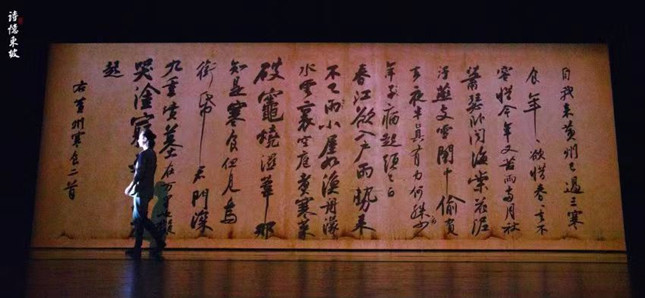 詩憶東坡
自我來黃州已過三寒
食年〻欲惜春〻去不
容惜今年又苦雨兩月秋
蕭瑟臥聞海棠花泥
汙燕支雪闇中偷負
去夜半真有力何殊少
年子病起頭已白
春江欲入戶雨勢來
不已雨小屋如漁舟濛
水雲裏空庖煮寒菜
破竈燒溼葦那
知是寒食但見烏
銜帋君門深
九重墳墓在万里
哭塗窮
起
右黃州寒食二首